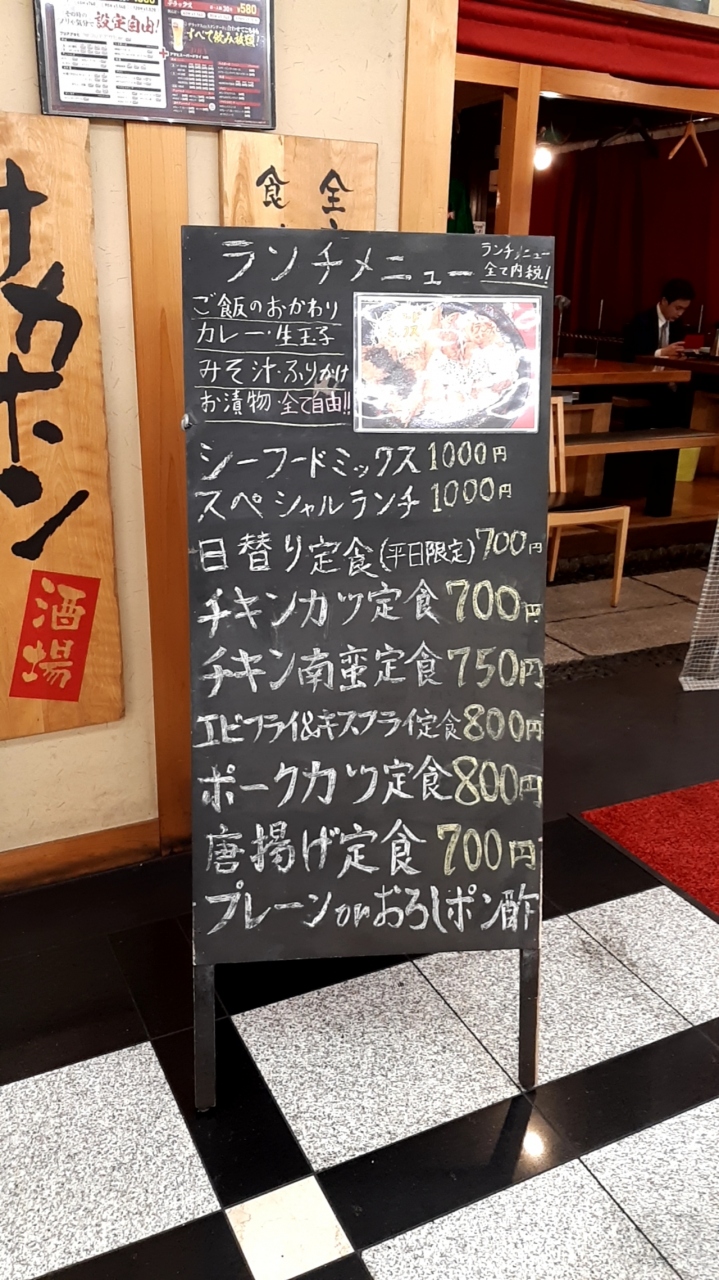 設定自由!
¥580
すべて飲み放題!
全
食
ナカホン
酒場
ランチメニュー
ランチメニュー
全て内税!
ご飯のおかわり
カレー・生玉子
みそ汁・ふりかけ
お漬物・全て自由!!
シーフードミックス1000円
スペシャルランチ 1000円
日替り定食(平日限定)700円
チキンカツ定食700円
チキン南蛮定食750円
エビフライ&キスフライ定食800円
ポークカツ定食800円
唐揚げ定食700円
プレーンorおろしポン酢